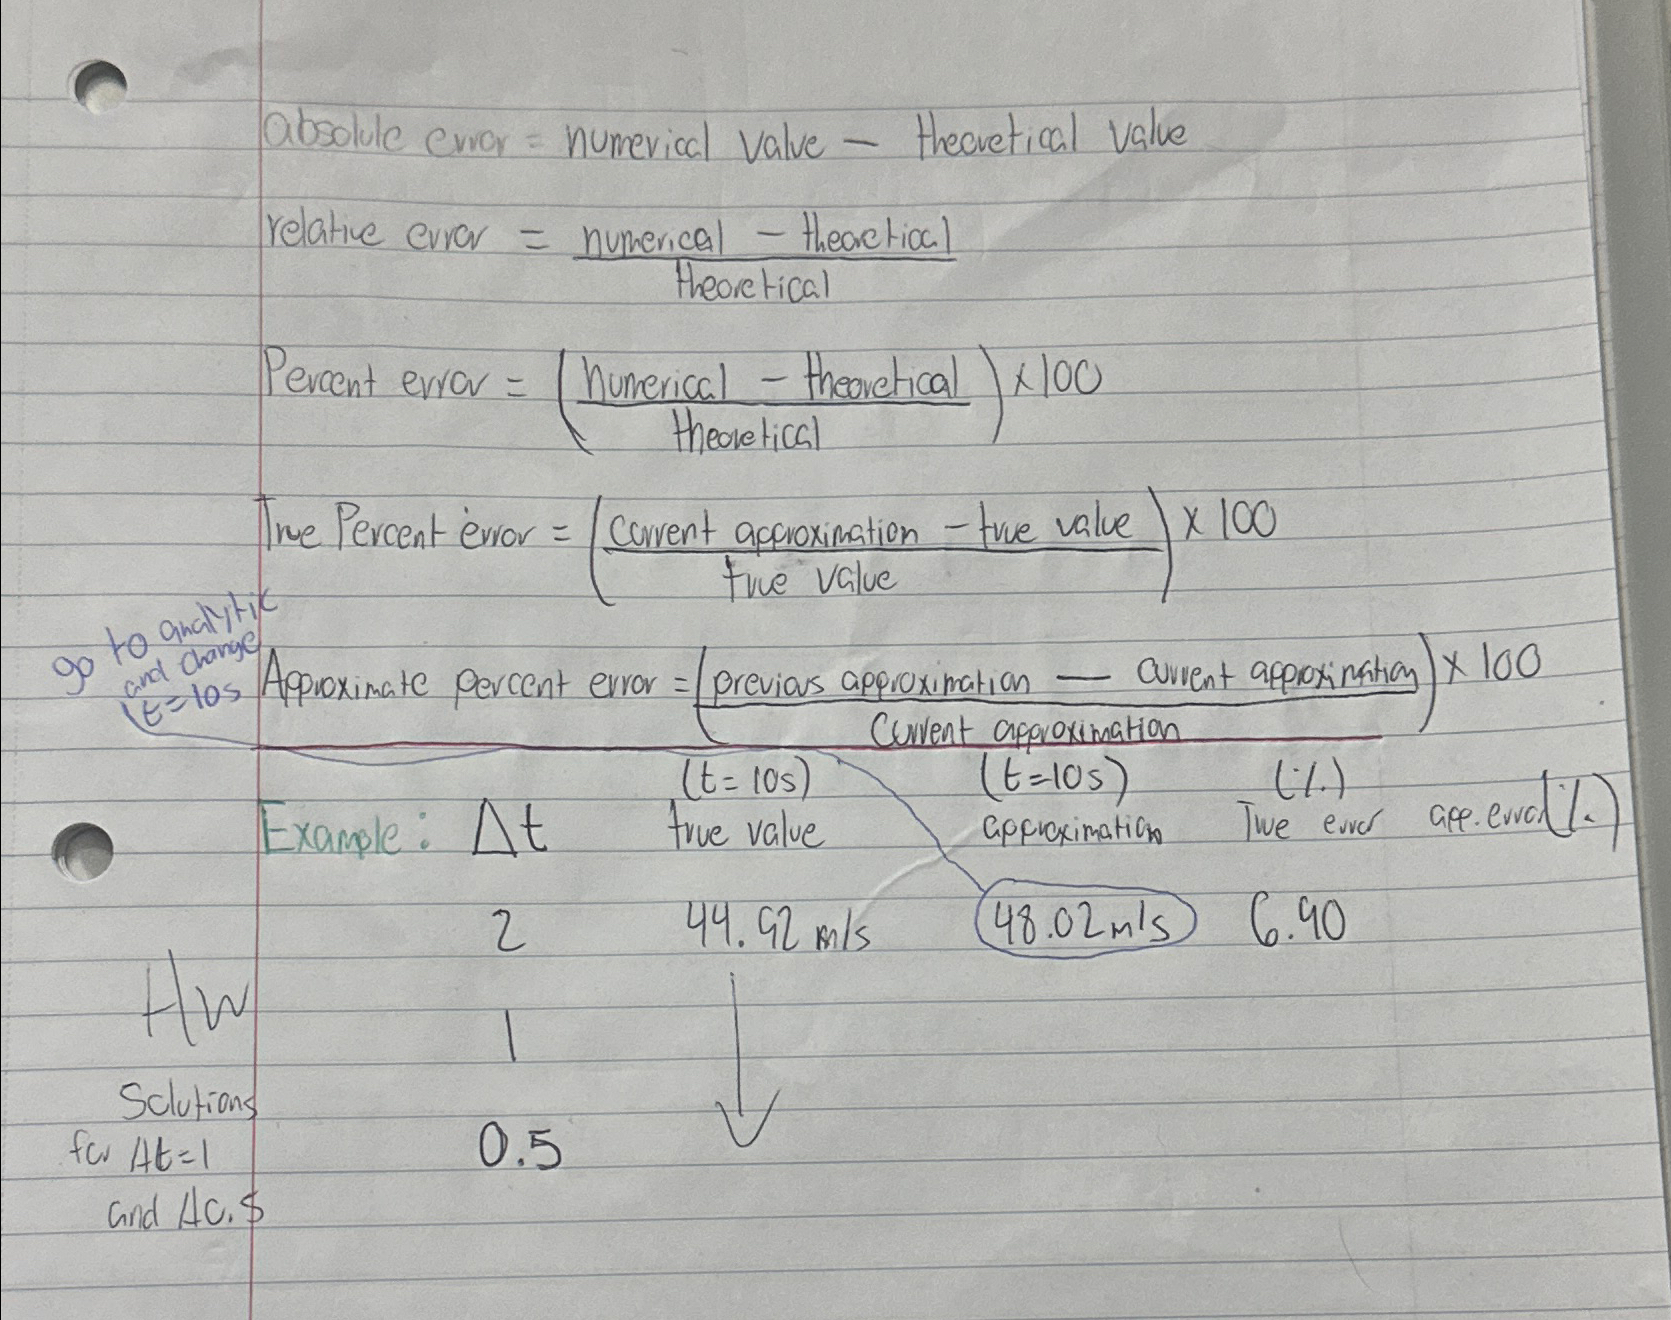 absolute error = numerical value – theoretical value
relative error = numerical – theoretical
theoretical
Percent error = (numerical – theoretical) × 100
theoretical
True Percent error = (current approximation – true value) × 100
true value
go to analytic
and change
t=10s
Approximate percent error = (previous approximation — current approximation) × 100
Current approximation
(t=10s) (t=10s) (%)
Example: Δt true value approximation True error app. error (%)
2 44.92 m/s 48.02 m/s 6.90
HW
1
Solutions
for Δt=1
0.5
and Δ0.5